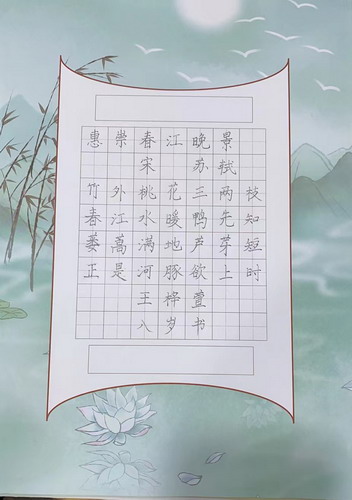 惠崇春江晚景
宋 苏轼
竹外桃花三两枝
春江水暖鸭先知
蒌蒿满地芦芽短
正是河豚欲上时
王梓萱
八岁书